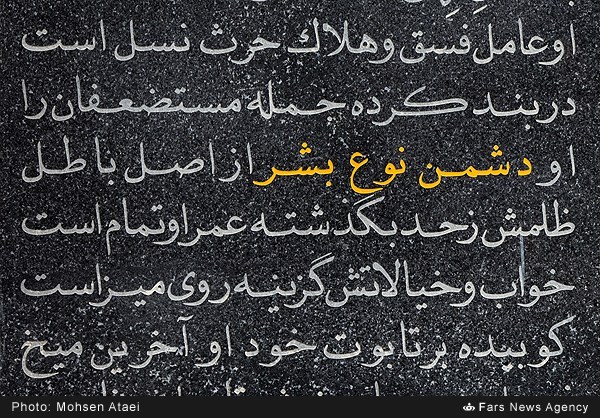 او عامل فسق و هلاك حرث نسل است
در بند کرده جمله مستضعفان را
او دشمن نوع بشر از اصل باطل
ظلمش زحد بگذشته عمر او تمام است
خواب و خیالاتش گزینه روی میز است
کوبیده بر تابوت خود او آخرین میخ
Photo: Mohsen Ataei
Fars News Agency